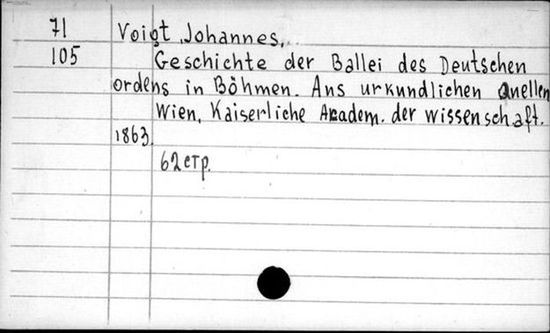 71 Voigt, Johannes.
105 Geschichte der Ballei des Deutschen
ordens in Böhmen. Ans urkundlichen Quellen
Wien, Kaiserliche Academ. der wissenschaft.
1863.
62 стр.